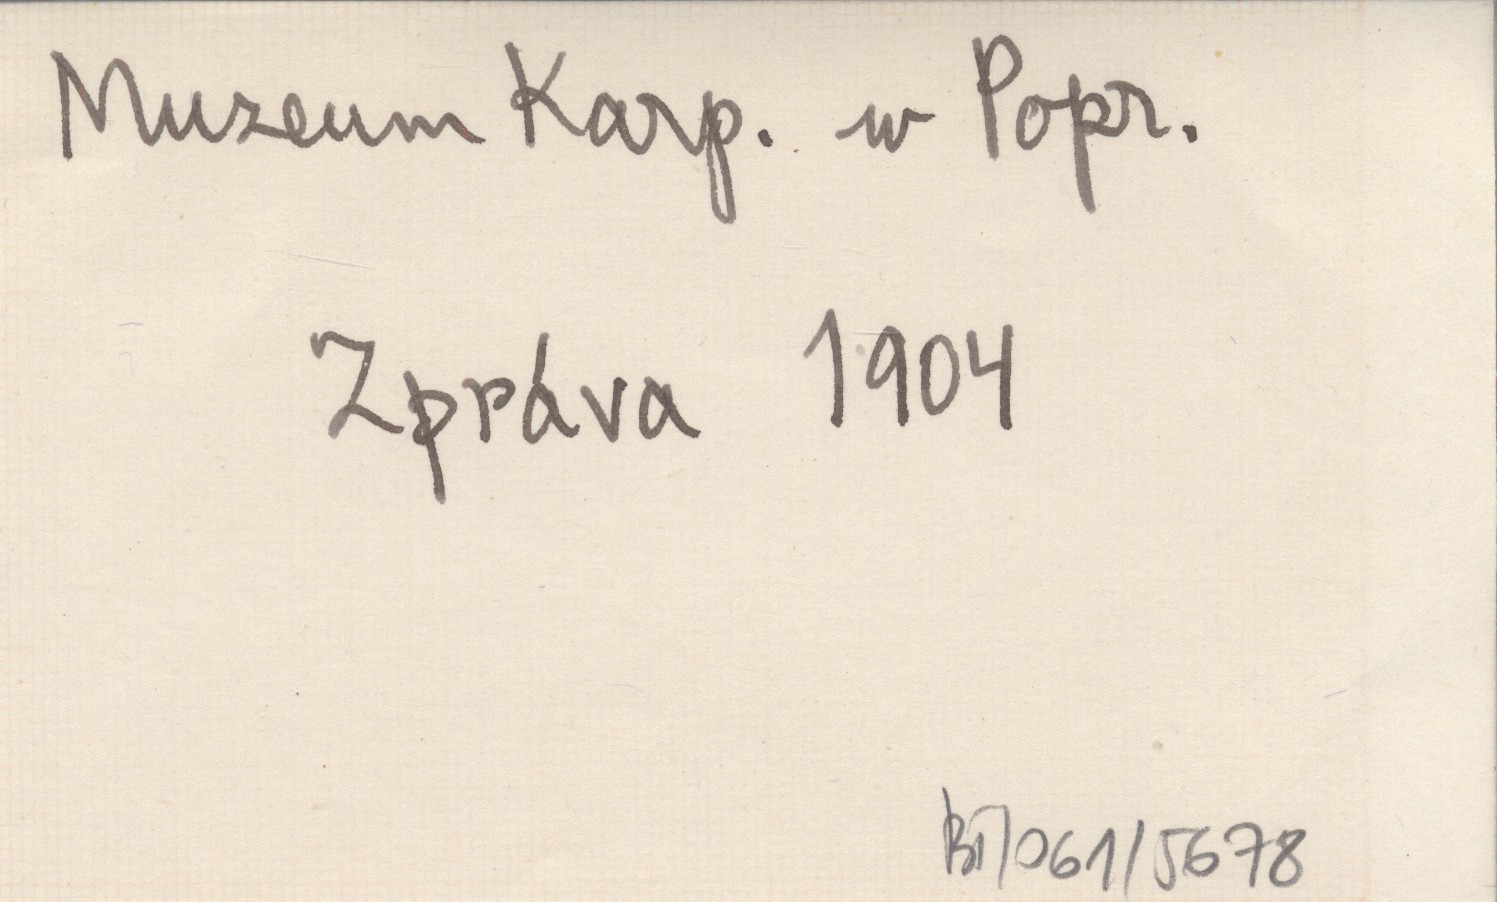 Muzeum Karp. w Popr.
Zpráva 1904
061/5678